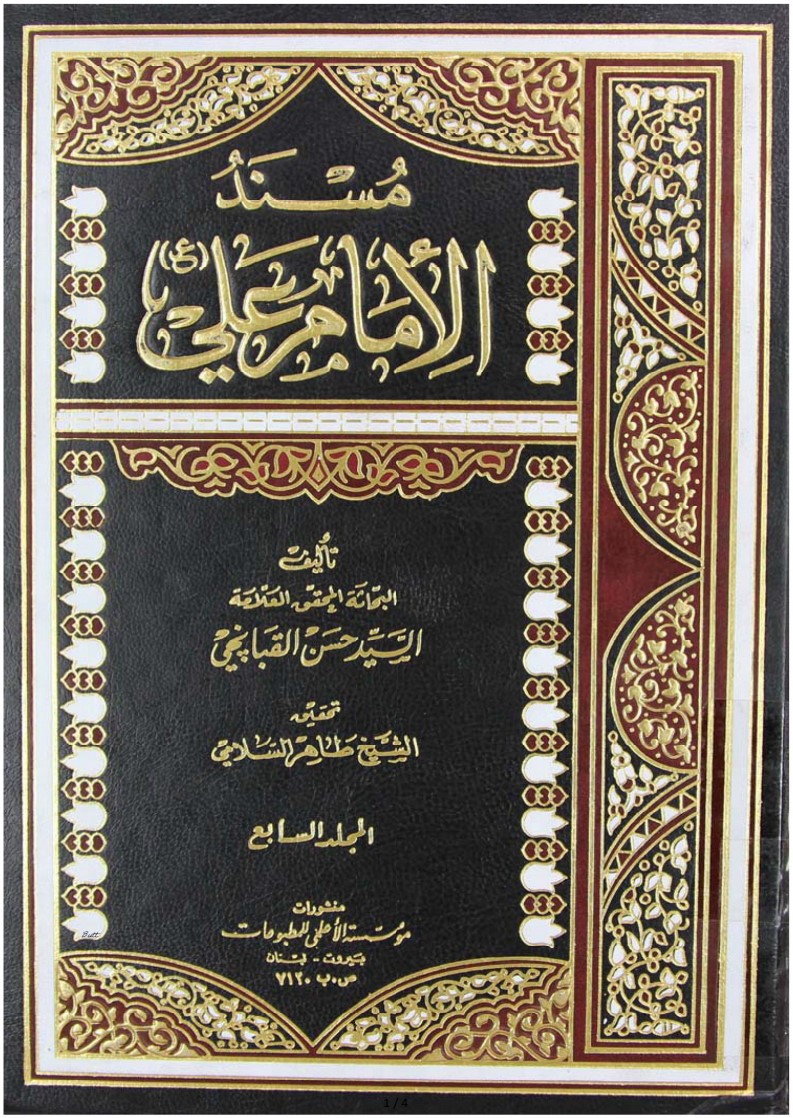 مُسْنَدُ
الإمَامِ عَلي (ع)
تأليف
البحاثة المحقق العلّامة
السَّيِّد حسَن القبَانچي
تحقيق
الشيخ طاهر السَّلامي
المجلد السابع
منشورات
مؤسّسة الأعلمي للمطبوعات
بَيروت - لبنان
ص.ب ٧١٢٠
Butt
1 / 4